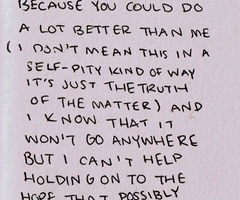 BECAUSE YOU COULD DO
A LOT BETTER THAN ME
(I DON'T MEAN THIS IN A
SELF-PITY KIND OF WAY
IT'S JUST THE TRUTH
OF THE MATTER) AND
I KNOW THAT IT
WON'T GO ANYWHERE
BUT I CAN'T HELP
HOLDING ON TO THE
HOPE THAT POSSIBLY